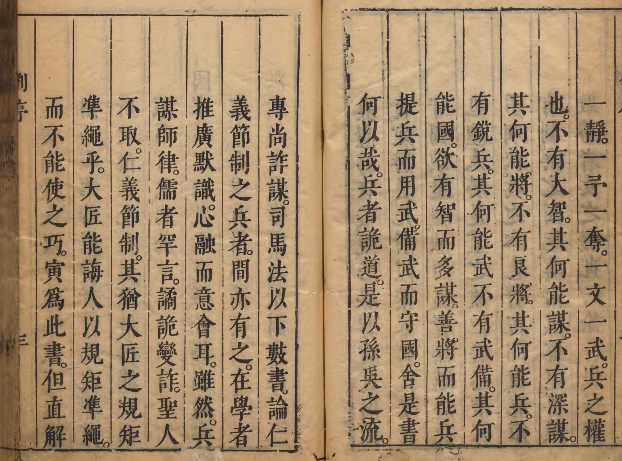 一靜。一予一奪。一文一武。兵之權
也。不有大智。其何能謀。不有深謀。
其何能將。不有良將。其何能兵。不
有銳兵。其何能武。不有武備。其何
能國。欲有智而多謀。善將而能兵
提兵而用武。備武而守國。舍是書
何以哉。兵者詭道。是以孫吳之流。
專尚詐謀。司馬法以下數書。論仁
義節制之兵者。間亦有之。在學者
推廣默識。心融而意會耳。雖然。兵
謀師律。儒者罕言。譎詭變詐。聖人
不取。仁義節制。其猶大匠之規矩
準繩乎。大匠能誨人以規矩準繩。
而不能使之巧。寅爲此書。但直解
劉序
三